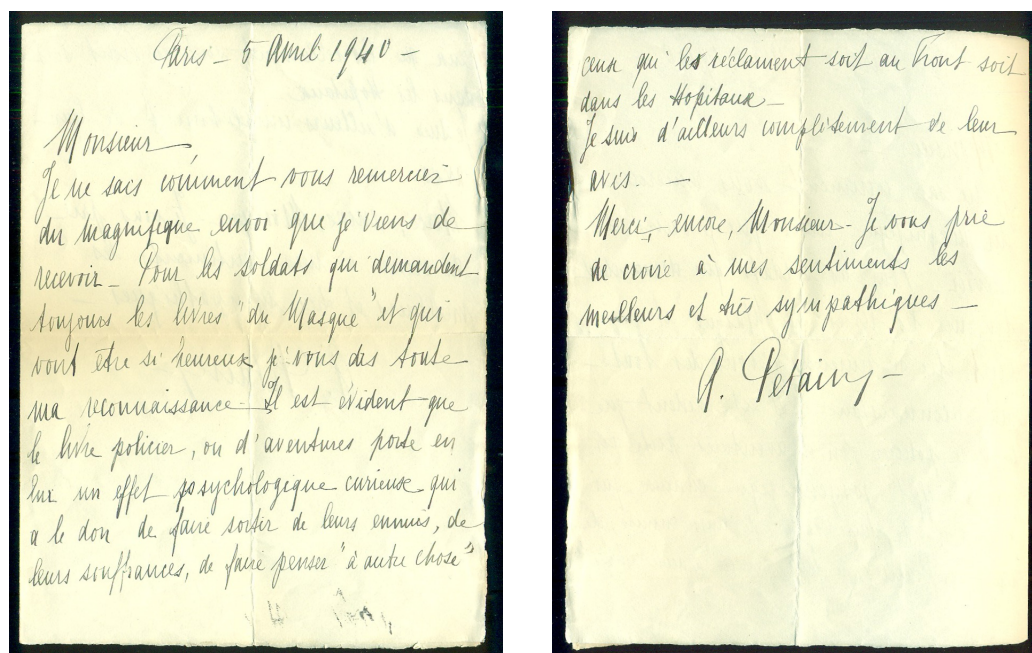 Paris – 5 Avril 1940 –
Monsieur
Je ne sais comment vous remercier
du magnifique envoi que je viens de
recevoir – Pour les soldats qui demandent
toujours les livres "du Masque" et qui
vont être si heureux je vous dis toute
ma reconnaissance – Il est évident que
le livre policier, ou d'aventures porte en
lui un effet psychologique curieux qui
a le don de faire sortir de leurs ennuis, de
leurs souffrances, de faire penser "à autre chose"
ceux qui les réclament soit au Front soit
dans les Hôpitaux –
Je suis d'ailleurs complètement de leur
avis. –
Merci, encore, Monsieur – Je vous prie
de croire à mes sentiments les
meilleurs et très sympathiques –
A. Petain –